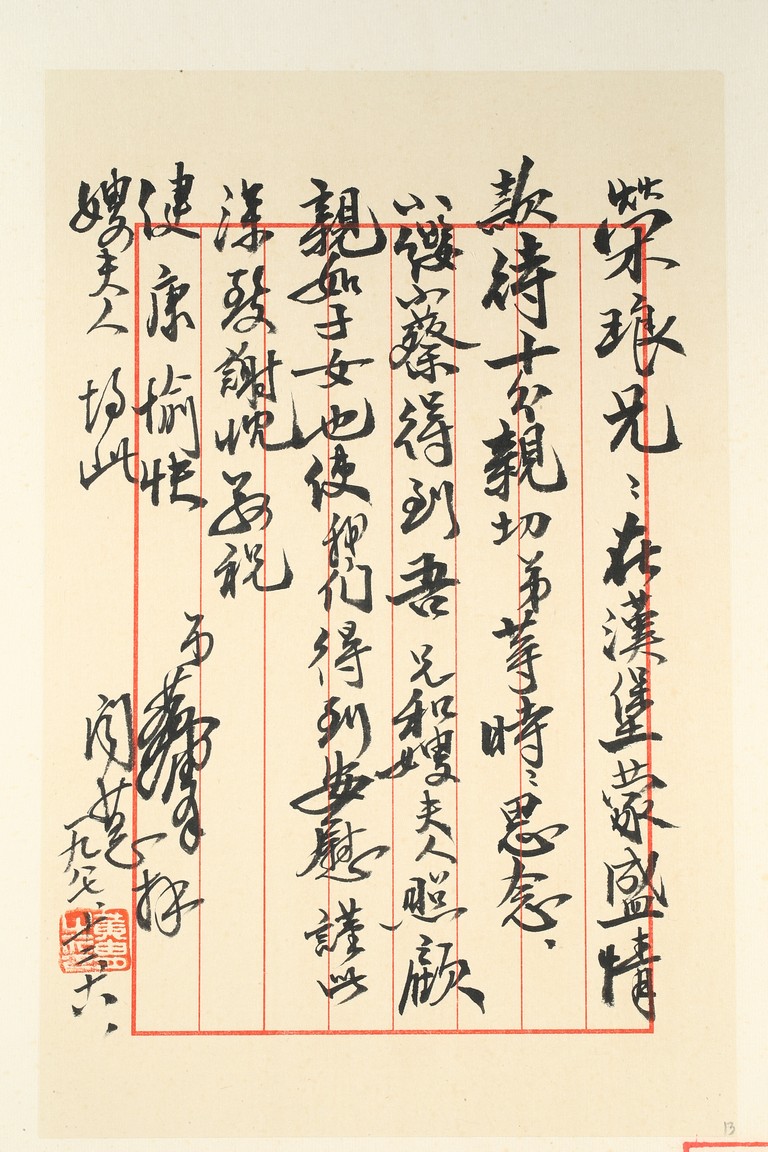 榮琅兄:在漢堡蒙盛情
款待十分親切弟等時:思念、
小纓小蔡得到吾兄和嫂夫人照顧
親如子女也使我们得到安慰謹此
深致謝忱並祝
健康愉快
嫂夫人均此
弟 拜
一九八七、十二、六、
13